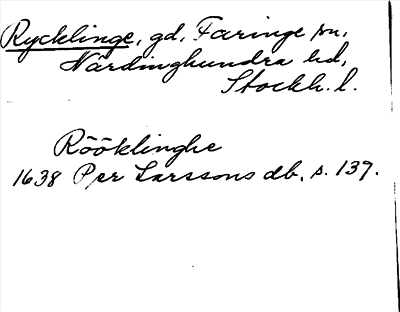 Rycklinge, gd, Faringe sn,
Närdinghundra hd,
Stockh. l.
Rööklinghe
1638 Per Larssons db, s. 137.